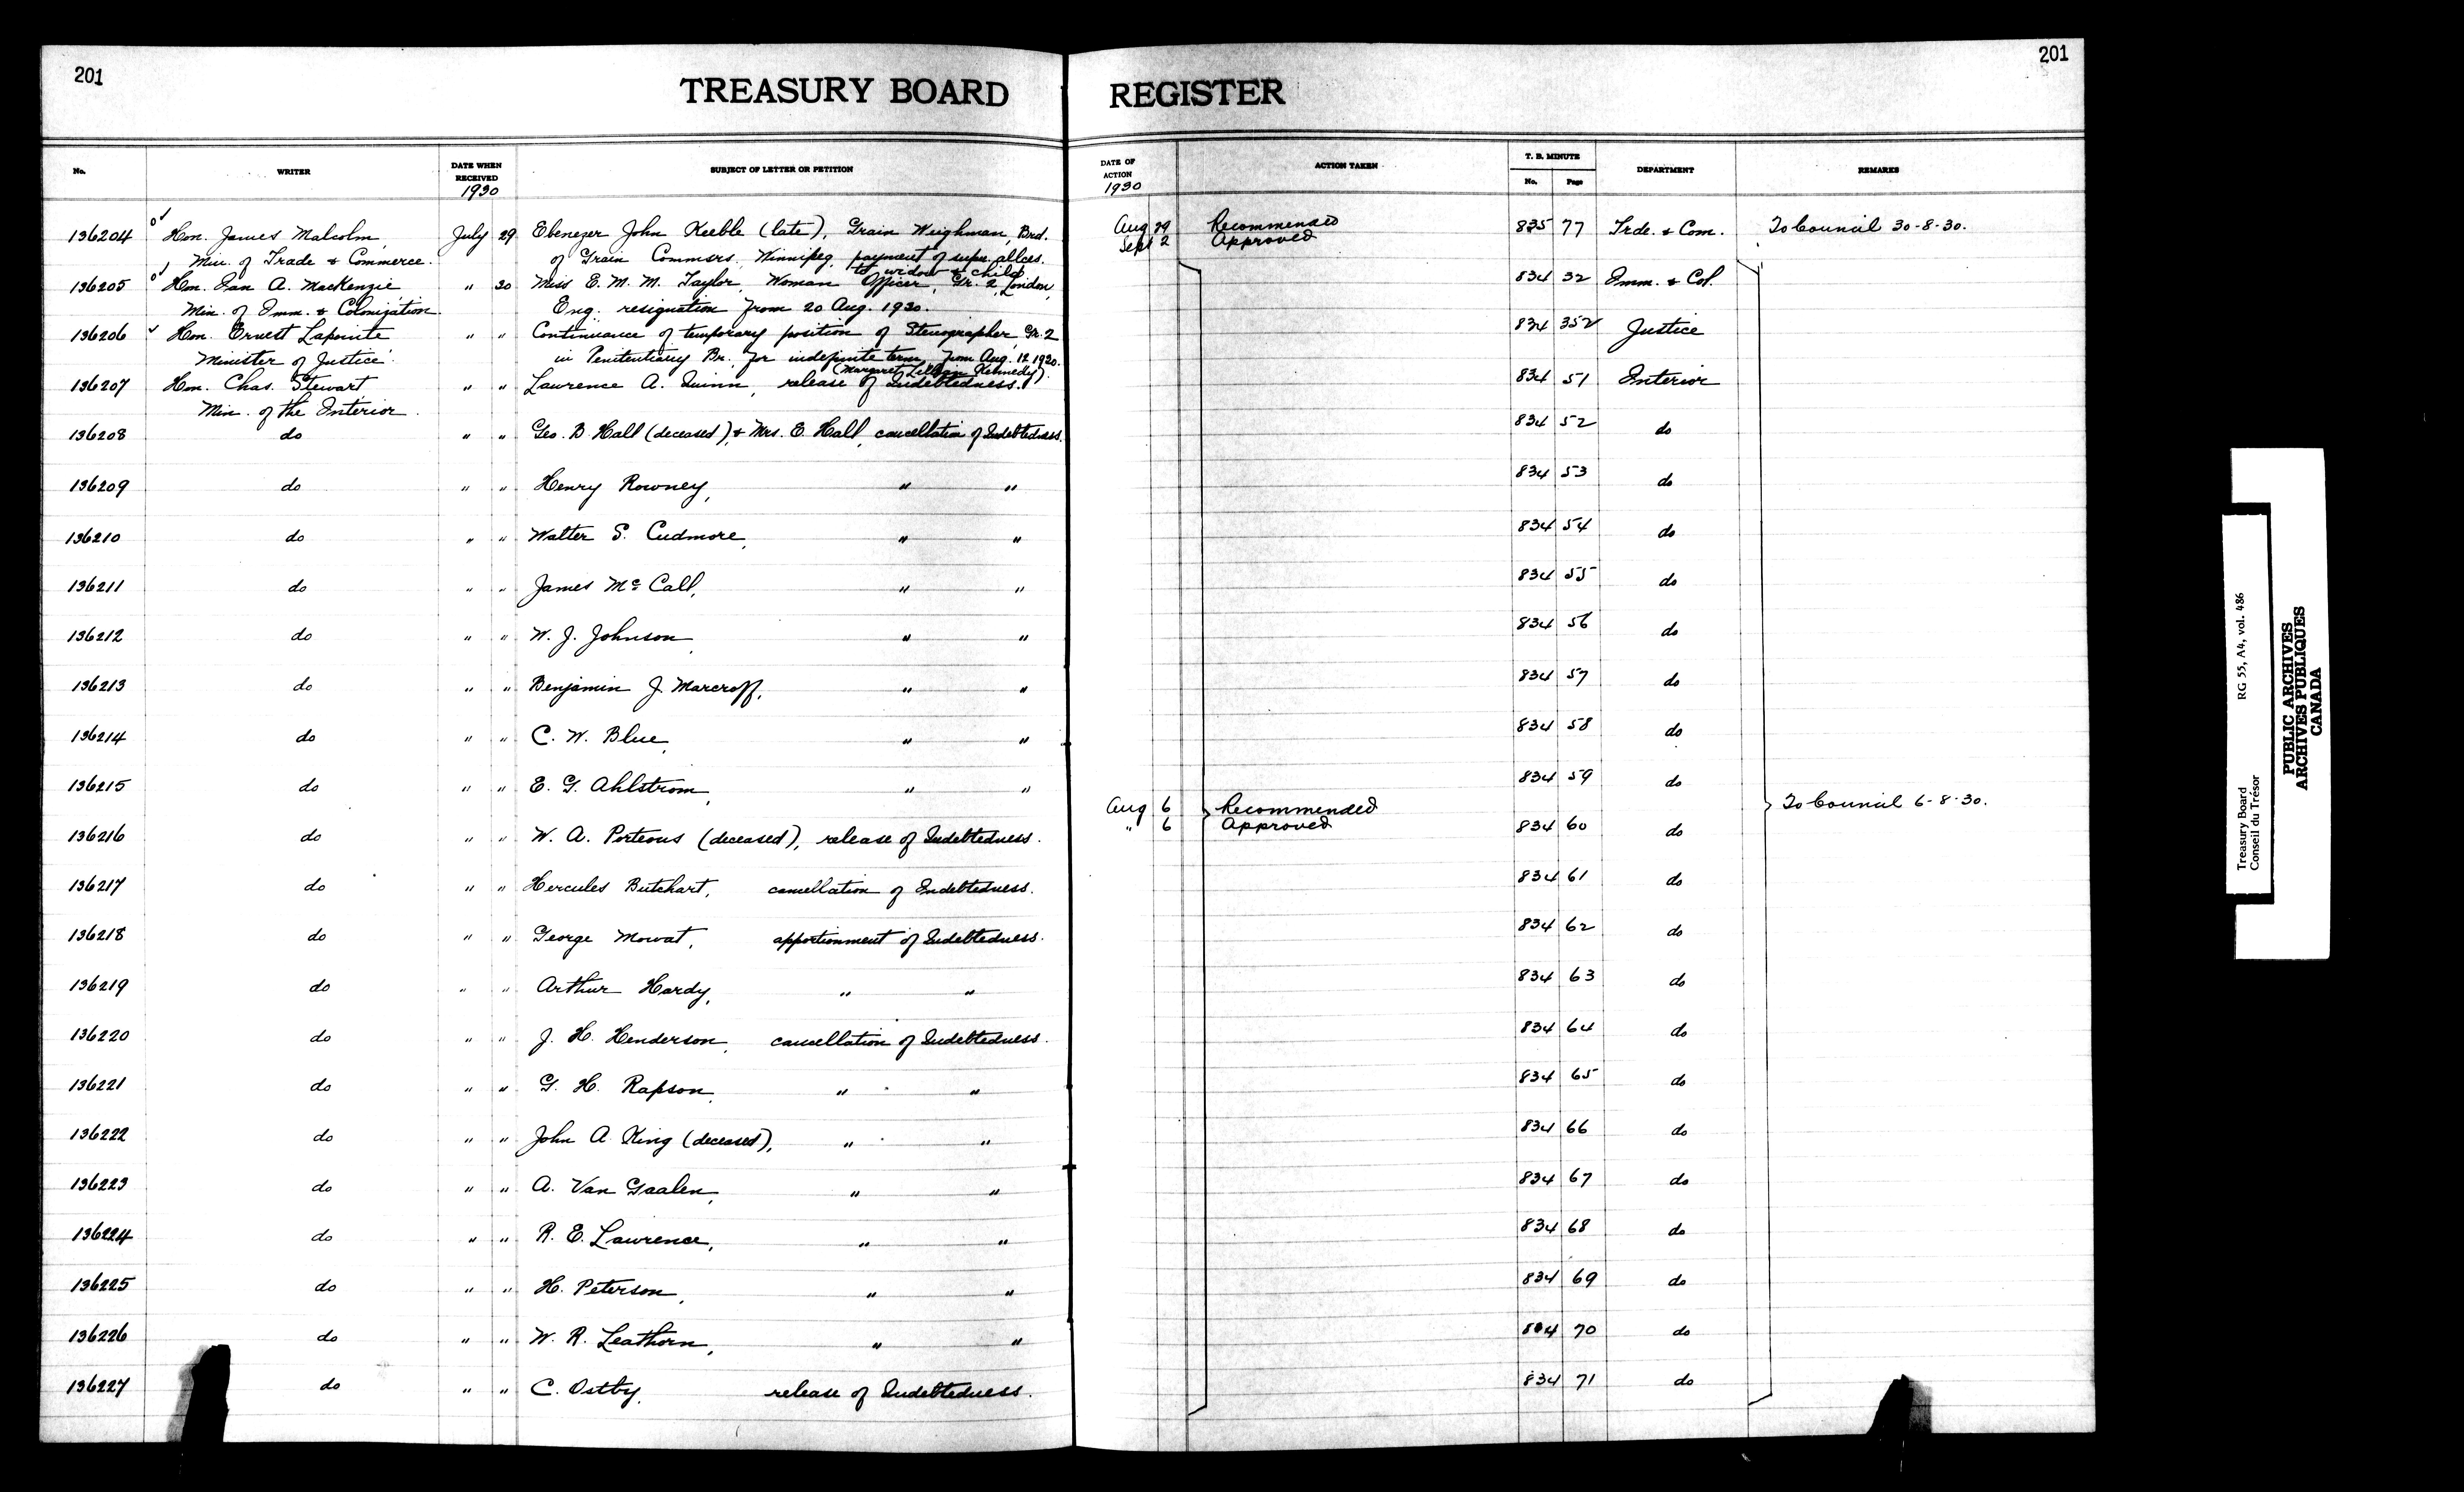 201
201
TREASURY BOARD REGISTER
No. WRITER DATE WHEN RECEIVED 1930 SUBJECT OF LETTER OR PETITION DATE OF ACTION 1930 ACTION TAKEN T. B. MINUTE No. Page DEPARTMENT REMARKS
136204 Hon. James Malcolm, July 29 Ebenezer John Keeble (late), Grain Weighman, Brd. Aug 29 Recommended 835 77 Trde. & Com. To Council 30-8-30.
Min. of Trade & Commerce. of Grain Commsrs. Winnipeg, payment of supn. allces. Sept 2 Approved
to widow & child
136205 Hon. Ian A. MacKenzie " 30 Miss E. M. M. Taylor, Woman Officer, Gr. 2, London, 834 32 Imm. & Col.
Min. of Imm. & Colonization. Eng. resignation from 20 Aug. 1930.
136206 Hon. Ernest Lapointe " " Continuance of temporary position of Stenographer, Gr. 2 834 352 Justice
Minister of Justice. in Penitentiary Br. for indefinite term, from Aug. 12 1930.
(Margaret Lillian Kennedy).
136207 Hon. Chas. Stewart " " Lawrence A. Quinn, release of Indebtedness. 834 51 Interior
Min. of the Interior.
136208 do " " Geo. B. Hall (deceased), & Mrs. E. Hall, cancellation of Indebtedness. 834 52 do
136209 do " " Henry Rowney, " " 834 53 do
136210 do " " Walter S. Cudmore, " " 834 54 do
136211 do " " James McCall, " " 834 55 do
136212 do " " W. J. Johnson, " " 834 56 do
136213 do " " Benjamin J. Marcroff, " " 834 57 do
136214 do " " C. W. Blue, " " 834 58 do
136215 do " " E. G. Ahlstrom, " " 834 59 do
Aug 6 Recommended To Council 6-8-30.
" 6 Approved
136216 do " " W. A. Porteous (deceased), release of Indebtedness. 834 60 do
136217 do " " Hercules Butchart, cancellation of Indebtedness. 834 61 do
136218 do " " George Mowat, apportionment of Indebtedness. 834 62 do
136219 do " " Arthur Hardy, " " 834 63 do
136220 do " " J. H. Henderson, cancellation of Indebtedness. 834 64 do
136221 do " " G. H. Rapson, " " 834 65 do
136222 do " " John A. King (deceased), " " 834 66 do
136223 do " " A. Van Gaalen, " " 834 67 do
136224 do " " R. E. Lawrence, " " 834 68 do
136225 do " " H. Peterson, " " 834 69 do
136226 do " " W. R. Leathorn, " " 834 70 do
136227 do " " C. Ostby, release of Indebtedness. 834 71 do
Treasury Board RG 55, A4, vol. 486
Conseil du Trésor
PUBLIC ARCHIVES
ARCHIVES PUBLIQUES
CANADA